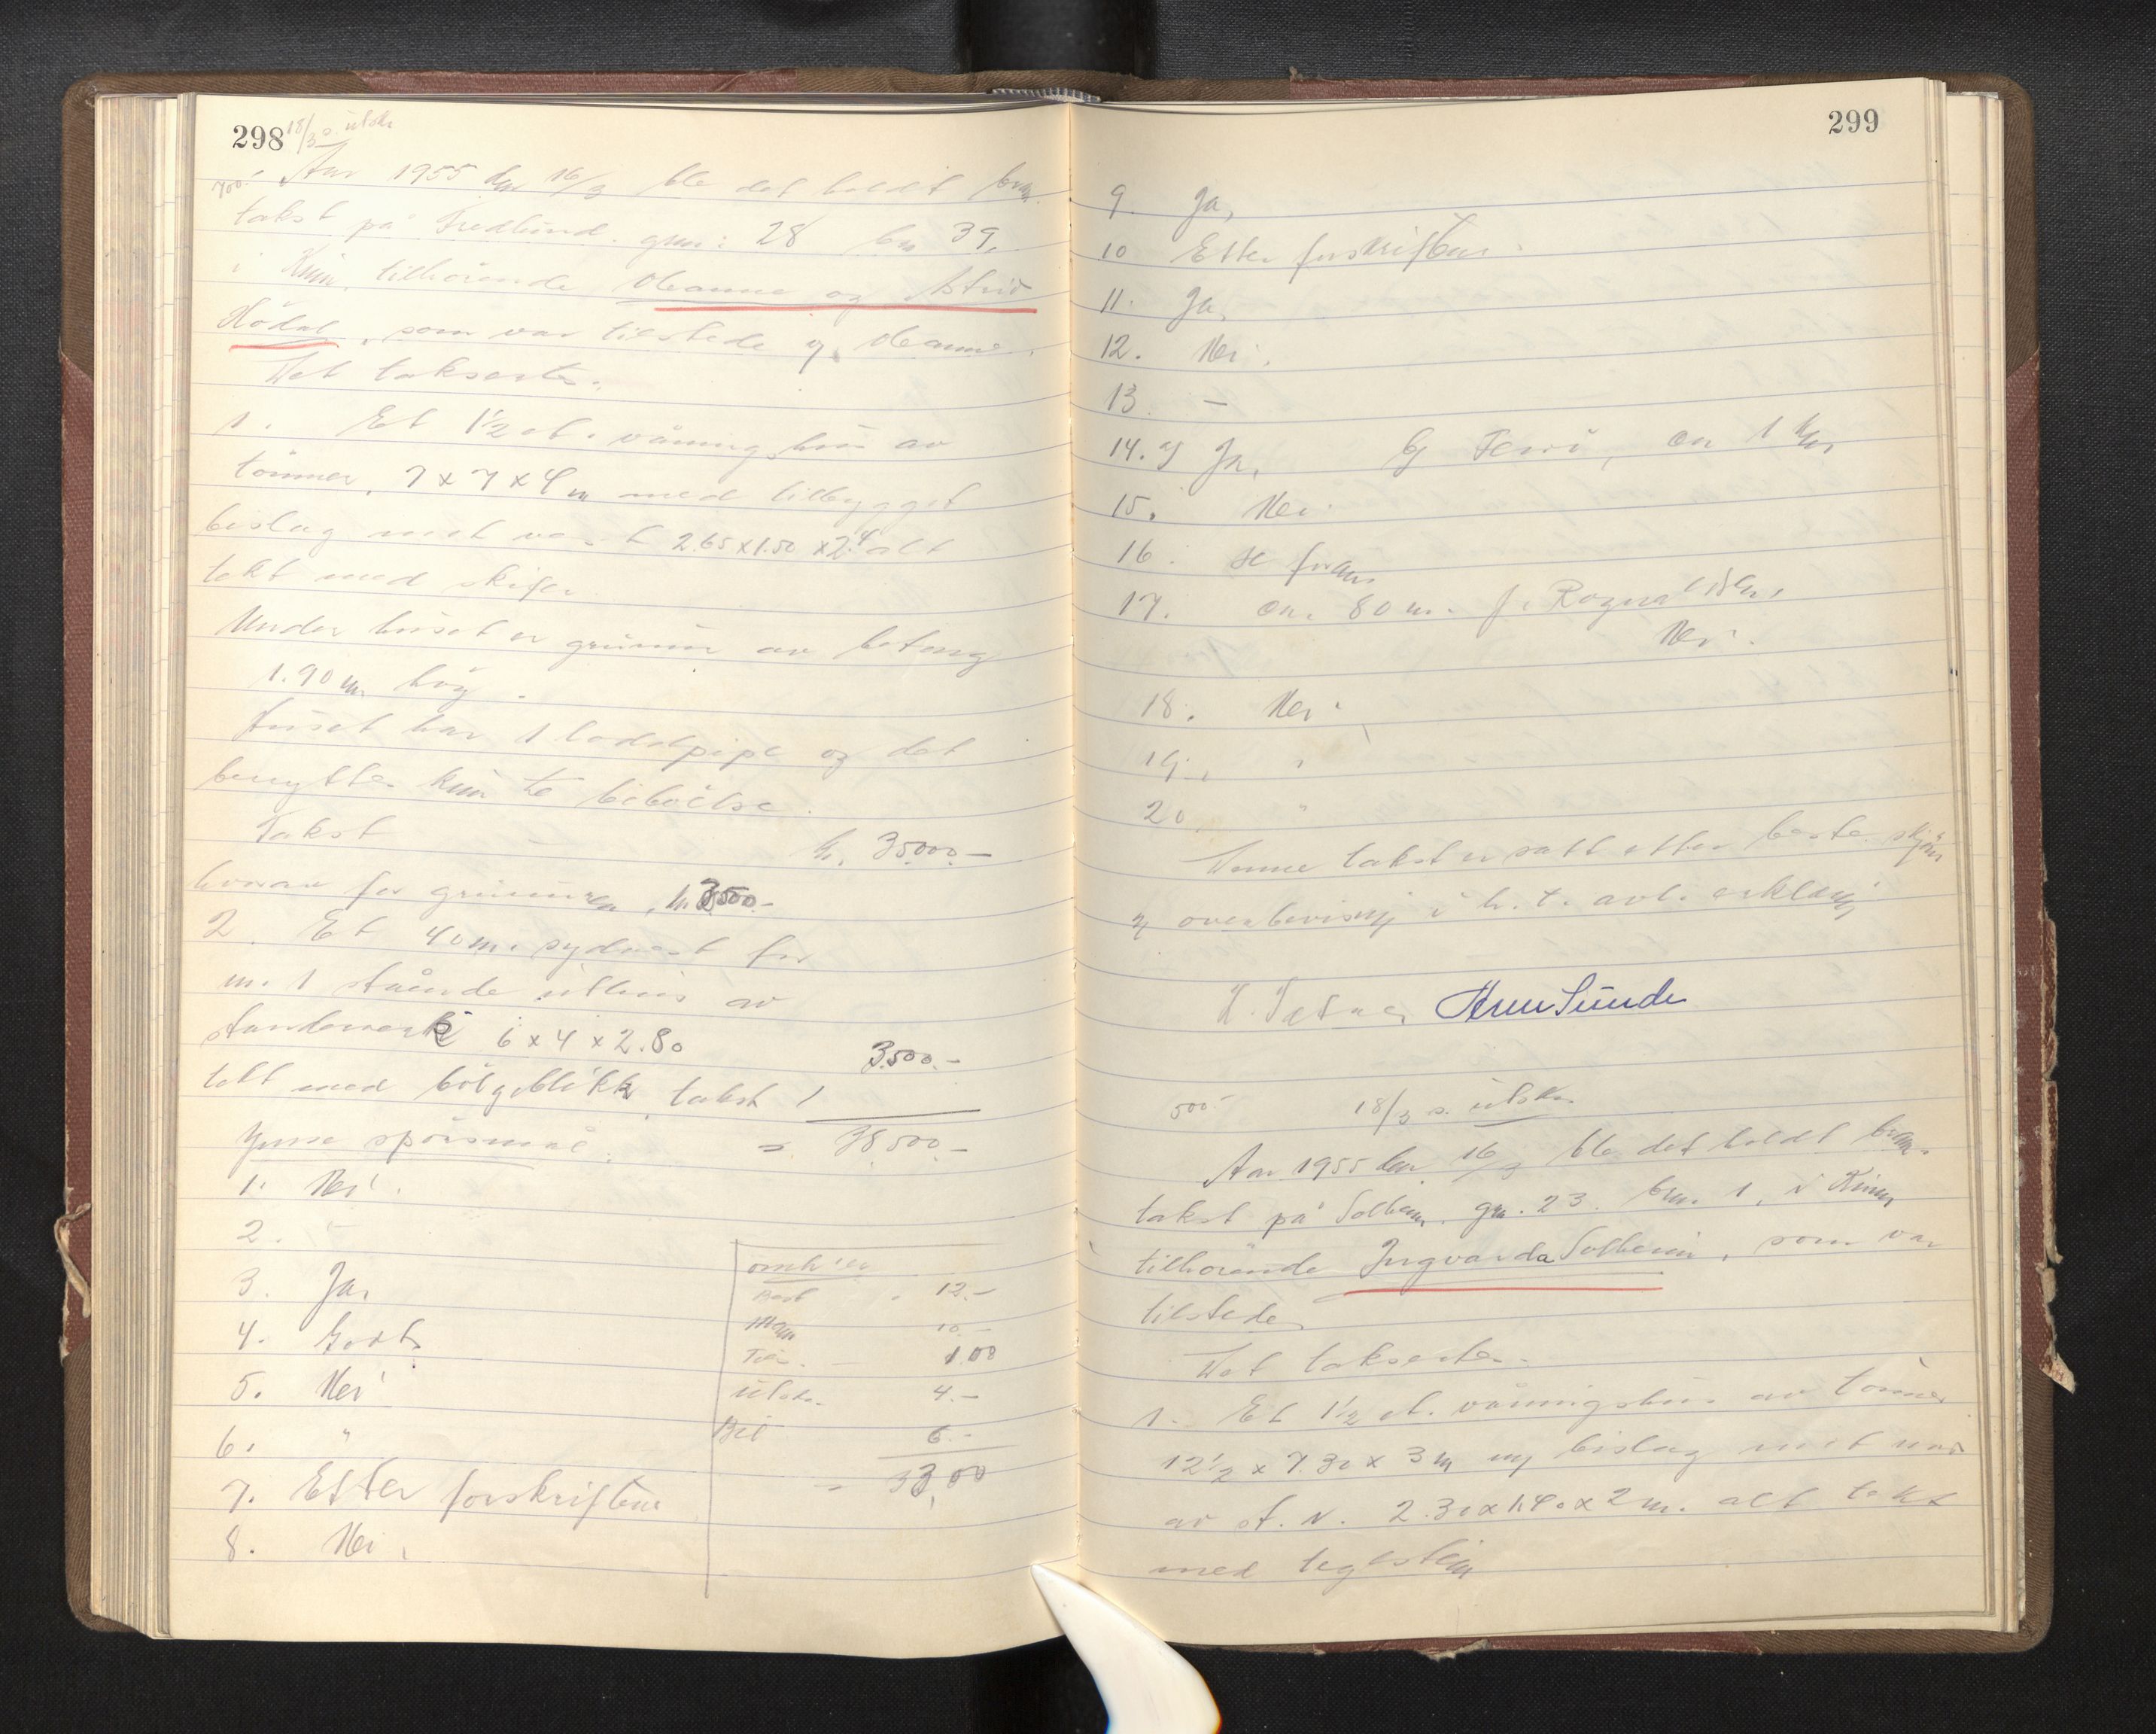 298 18/3 s. utskr
700.- Aar 1955 den 16/3 ble det holdt bran.
takst på Fredlund. gnr: 28 bn 39,
i Kinn, tilhörende Oleanne og Astrid
Hödal, som var tilstede y. Oleanne.
Det takserte:
1. Et 1½ et. våningshus av
tömmer, 7 x 7 x 4 m med tilbygget
bislag mot vest 2.65 x 1.50 x 2.4 alt
tekt med skifer
Under huset er grunnm av betong
1.90 m. höy.
Huset har 1 loddpipe og det
benyttes kun til beboelse.
Takst kr. 35000.-
hvorav for grunnmuren kr 3500.-
2. Et 40 m. sydvest for
nr. 1 stående uthus av
standerverk 6 x 4 x 2.80
tekt med bölgeblikk, takst 3500.-
Ymse spörsmål. = 38.500.-
1. Nei.
2. "
3. Ja,
4. Godt.
5. Nei
6. "
7. Etter forskriftene
8. Nei.
omk
Best 12.-
10.-
1.08
utskr. 4.-
Bil 6.-
= 33,00
299
9. Ja,
10 Etter forskriftene.
11. Ja,
12. Nei.
13. -
14. a) Ja, b) ca 1 km
15. Nei.
16. se foran
17. ca. 80 m. f.
Nei.
18. Nei.
19. "
20 "
Denne takst er satt etter beste skjönn
og overbevisning i h. t. avl. erklæring
Sunde
500.- 18/3 s. utskr.
Aar 1955 den 16/3 ble det holdt bran.
takst på Solheim. gn. 23. brn. 1, i Kinn
tilhörende Ingvarda Solheim, som var
tilstede.
Det takserte:
1. Et 1½ et. våningshus av tömmer
12½ x 7.30 x 3 m m/ bislag mot nord
av st. v. 2.30 x 1.40 x 2 m. alt tekt
med teglstein